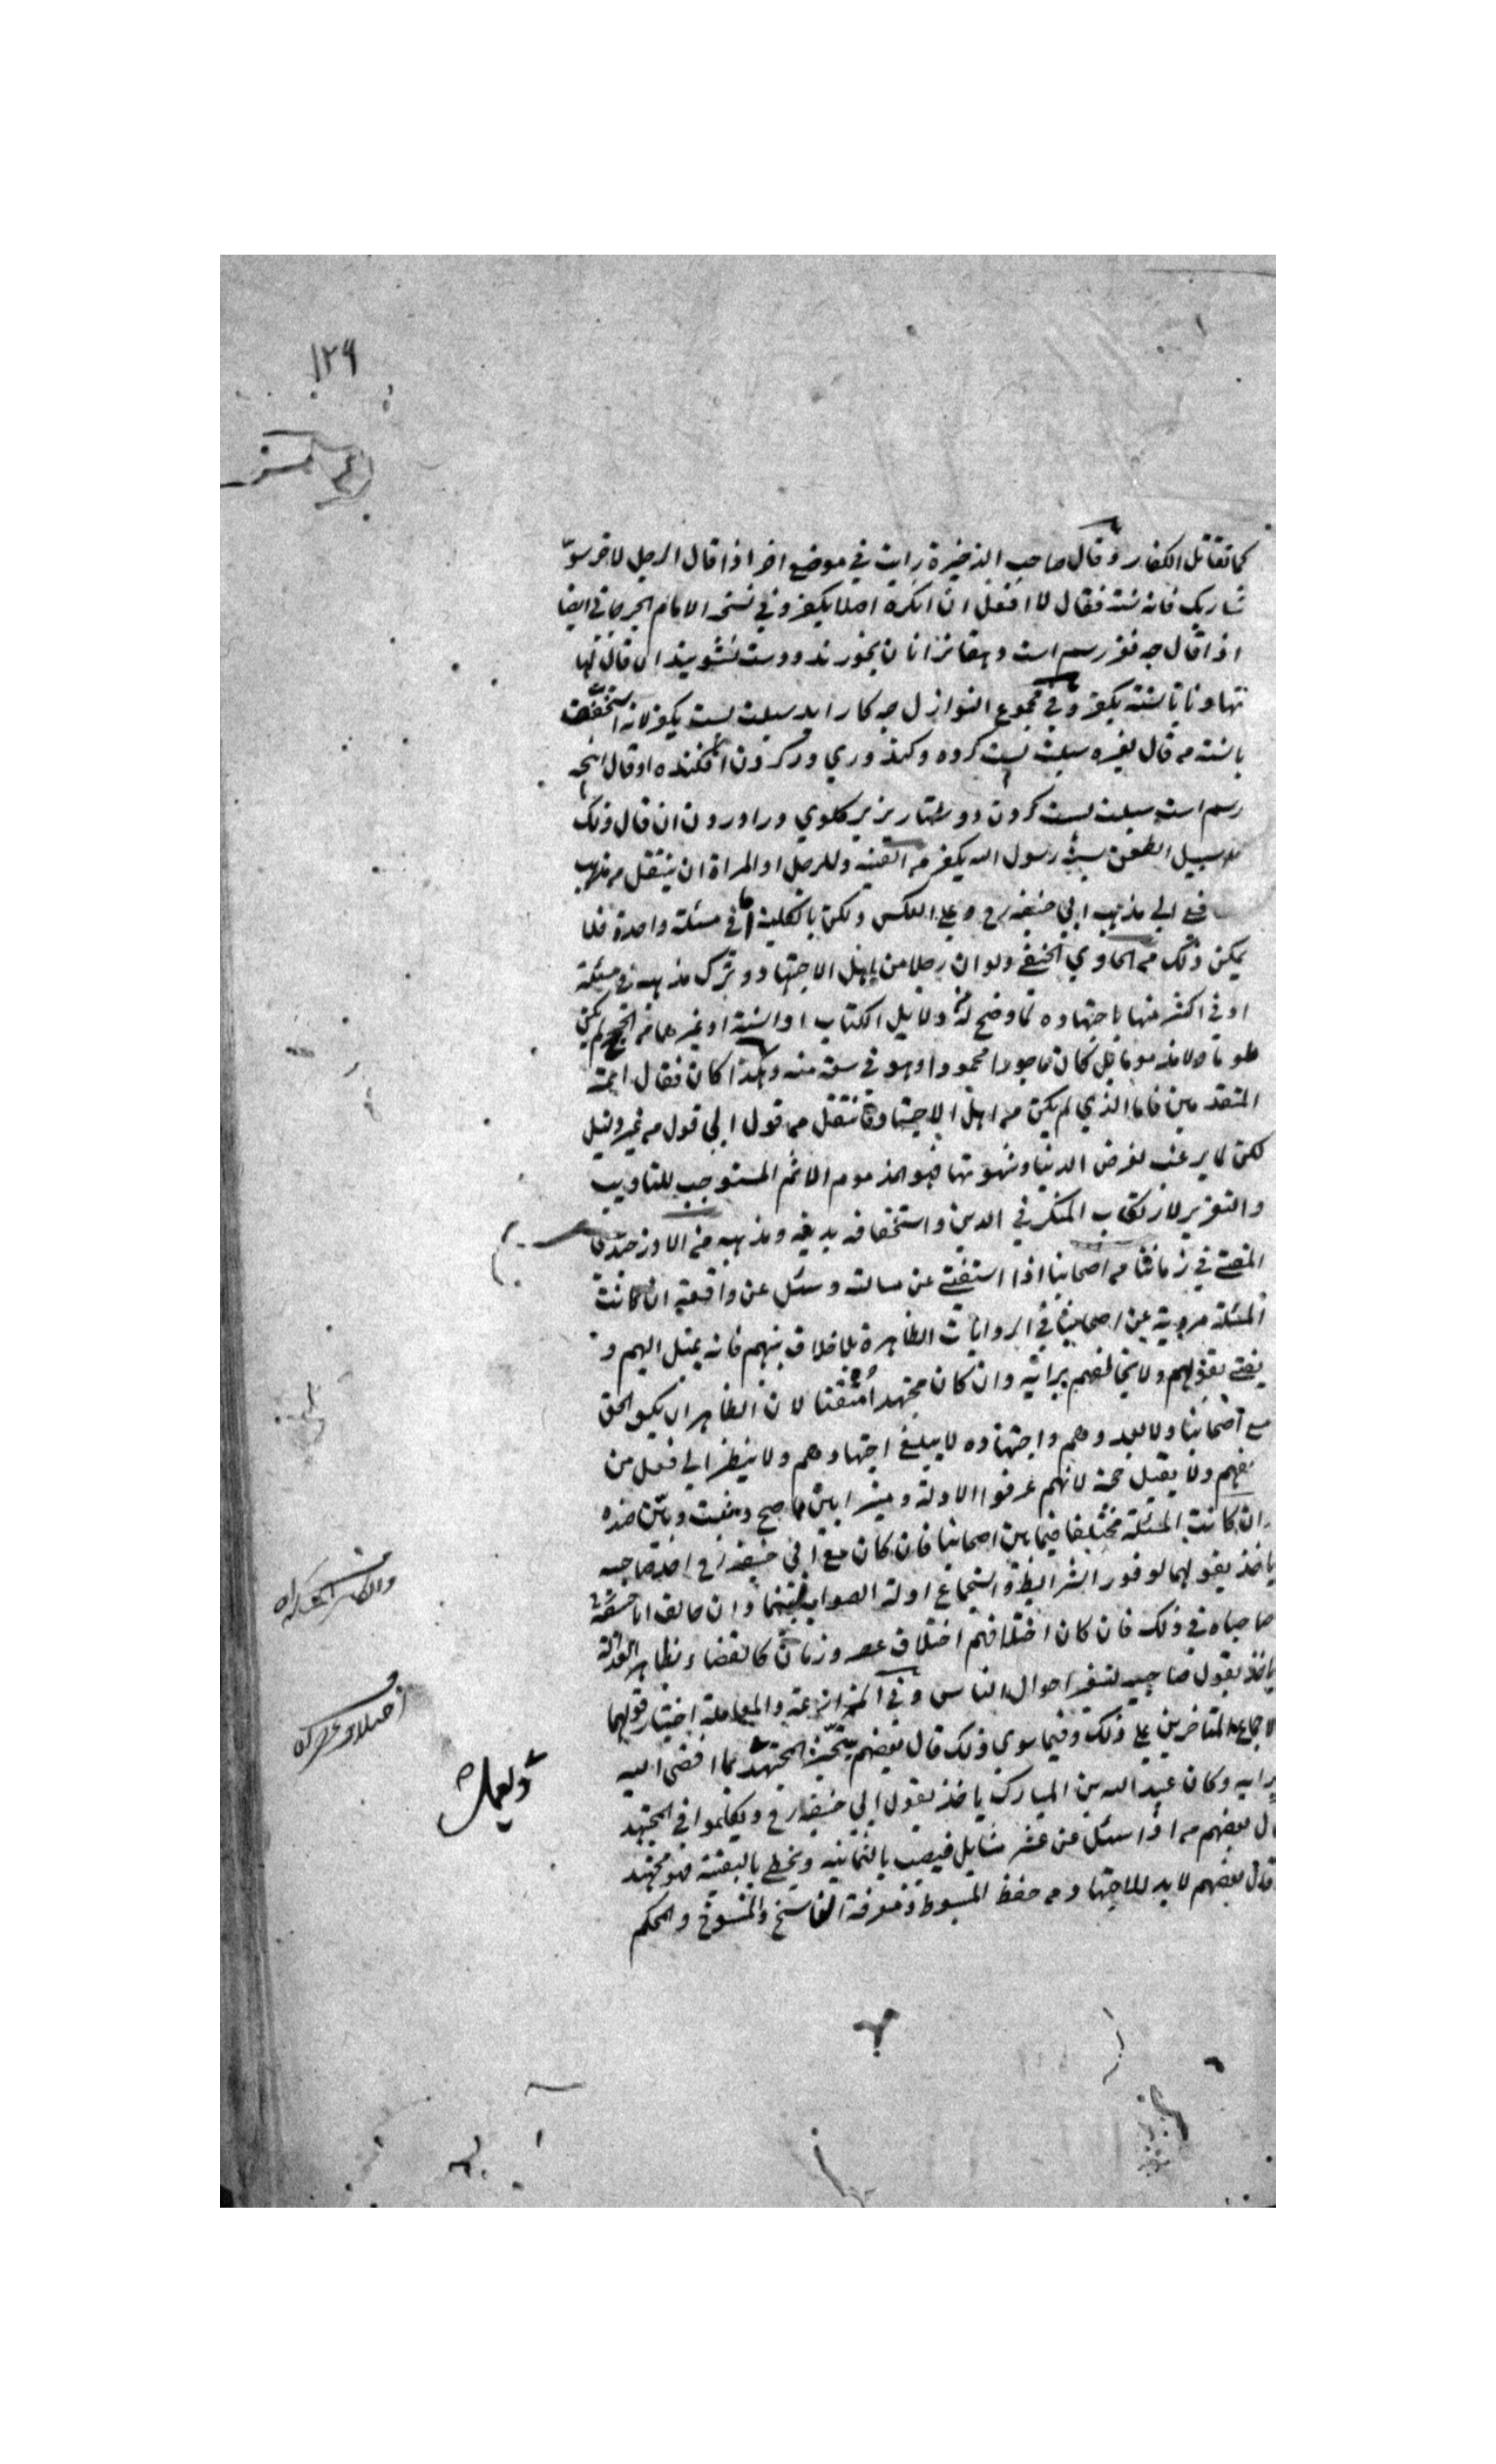 ١٢٩
كما تقاتل الكفار وقال صاحب الذخيرة رايت في موضع اخر اذا قال الرجل لاخر سوّ
شاربك فانه سنة فقال لا افعل ان انكره اصلا يكفر وفي نسخة الامام الجرجاني ايضا
اذا قال چه نغز رسم است دهقانانرا نان بخورند ودست نشويند ان قال
تهاونا بالسنة يكفر وفي مجموع النوازل چه كار ايد سبلت پست يكفر لانه استخفاف
بالسنة من قال لغيره سبلت پست كرده وكندوري در كردن افكنده او قال انچه
رسم است سبلت پست كردن ودستار زير گلوي در اوردن ان قال ذلك
سبيل الطعن سنة رسول الله يكفر من القنية وللرجل او المراة ان ينتقل من مذهب
فع الى مذهب ابي حنيفه رح وعلى العكس ولكن بالكلية اما في مسئلة واحدة فلا
يمكن ذلك من الحاوي الحنفي ولو ان رجلا من اهل الاجتهاد وترك مذهبه في مسئلة
او في اكثر منها باجتهاده لما وضح له من دلايل الكتاب او السنة او غيرهما من الحجج لم يكن
ملوما ولا مذموما بل كان ماجورا محمودا وهو في سعة منه وهكذا كان فقال ائمة
المتقدمين فاما الذي لم يكن من اهل الاجتهاد فانتقل من قول الى قول من غير دليل
لكن لما يرغب لغرض الدنيا وشهوتها فهو المذموم الاثم المستوجب للتاديب
والتعزير لارتكاب المنكر في الدين واستخفافه بدينه ومذهبه من
المفتي في زماننا من اصحابنا اذا استفتي عن مسالة وسئل عن واقعة ان كانت
المسئلة مروية عن اصحابنا في الروايات الظاهرة بلا خلاف بينهم فانه يميل اليهم و
يفتي بقولهم ولا يخالفهم برايه وان كان مجتهدا متقنا لان الظاهر ان يكون الحق
مع اصحابنا ولا يعدوهم واجتهاده لا يبلغ اجتهادهم ولا ينظر الى قول من
خالفهم ولا يقبل حجة لانهم عرفوا الادلة وميزوا بين ما صح وثبت وبين ضده
وان كانت المسئلة مختلفا فيما بين اصحابنا فان كان مع ابي حنيفه رح احد صاحبيه
ياخذ بقولهما لوفور الشرايط واستجماع ادلة الصواب فيهما وان خالف ابا حنيفة
صاحباه في ذلك فان كان اختلافهم اختلاف عصر وزمان كالقضاء بظاهر العدالة
ياخذ بقول صاحبيه لتغير احوال الناس وفي المزارعة والمعاملة اختيار قولهما
لاجماع المتاخرين على ذلك وفيما سوى ذلك قال بعضهم يتخير المجتهد بما افضى اليه
برايه وكان عبد الله بن المبارك ياخذ بقول ابي حنيفه رح وتكلموا في المجتهد
قال بعضهم من اذا سئل عن عشر مسايل فيصيب بالثمانية ويخطئ بالبقية فهو مجتهد
وقال بعضهم لا بد للاجتهاد من حفظ المبسوط ومعرفة الناسخ والمنسوخ والمحكم